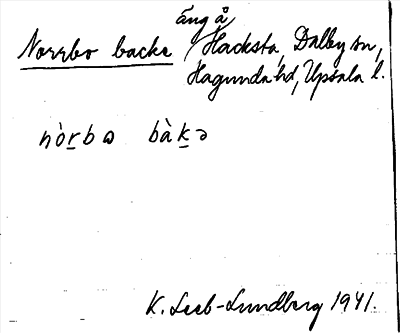 äng å
Norrbo backe Hacksta, Dalby sn,
Hagunda hd, Upsala l.
nòṟbɷ bàḵə
K. Leeb-Lundberg 1941.